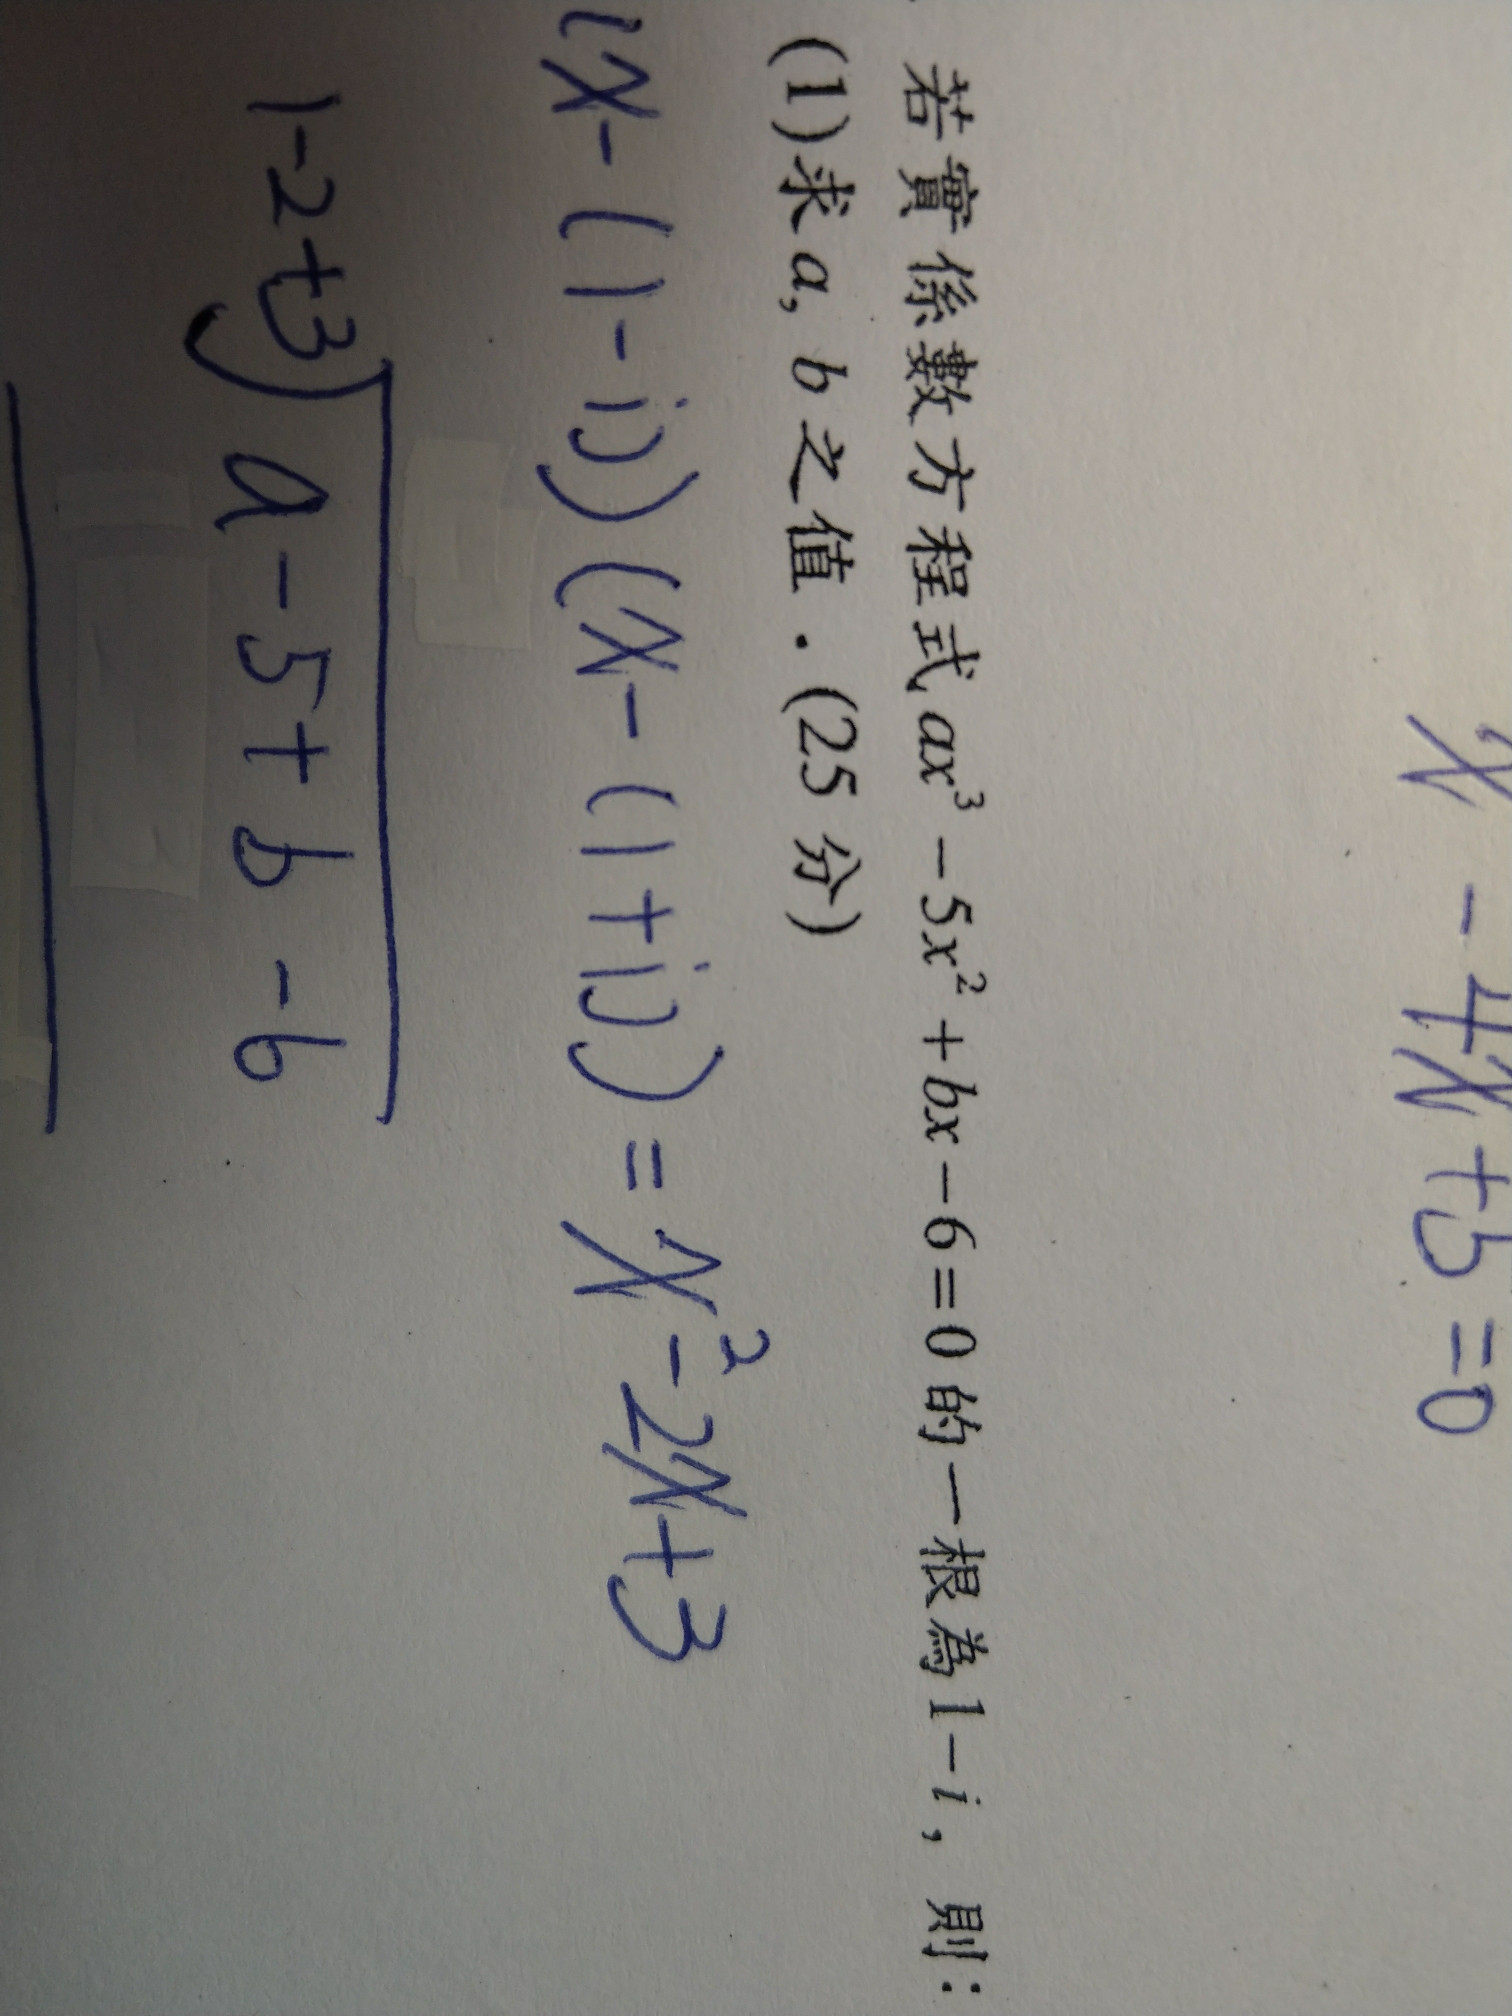 x - 4x + 5 = 0
若實係數方程式 ax³ - 5x² + bx - 6 = 0 的一根為 1 - i，則：
(1)求 a, b 之值．(25 分)
(x - (1 - i))(x - (1 + i)) = x² - 2x + 3
1 - 2 + 3) a - 5 + b - 6